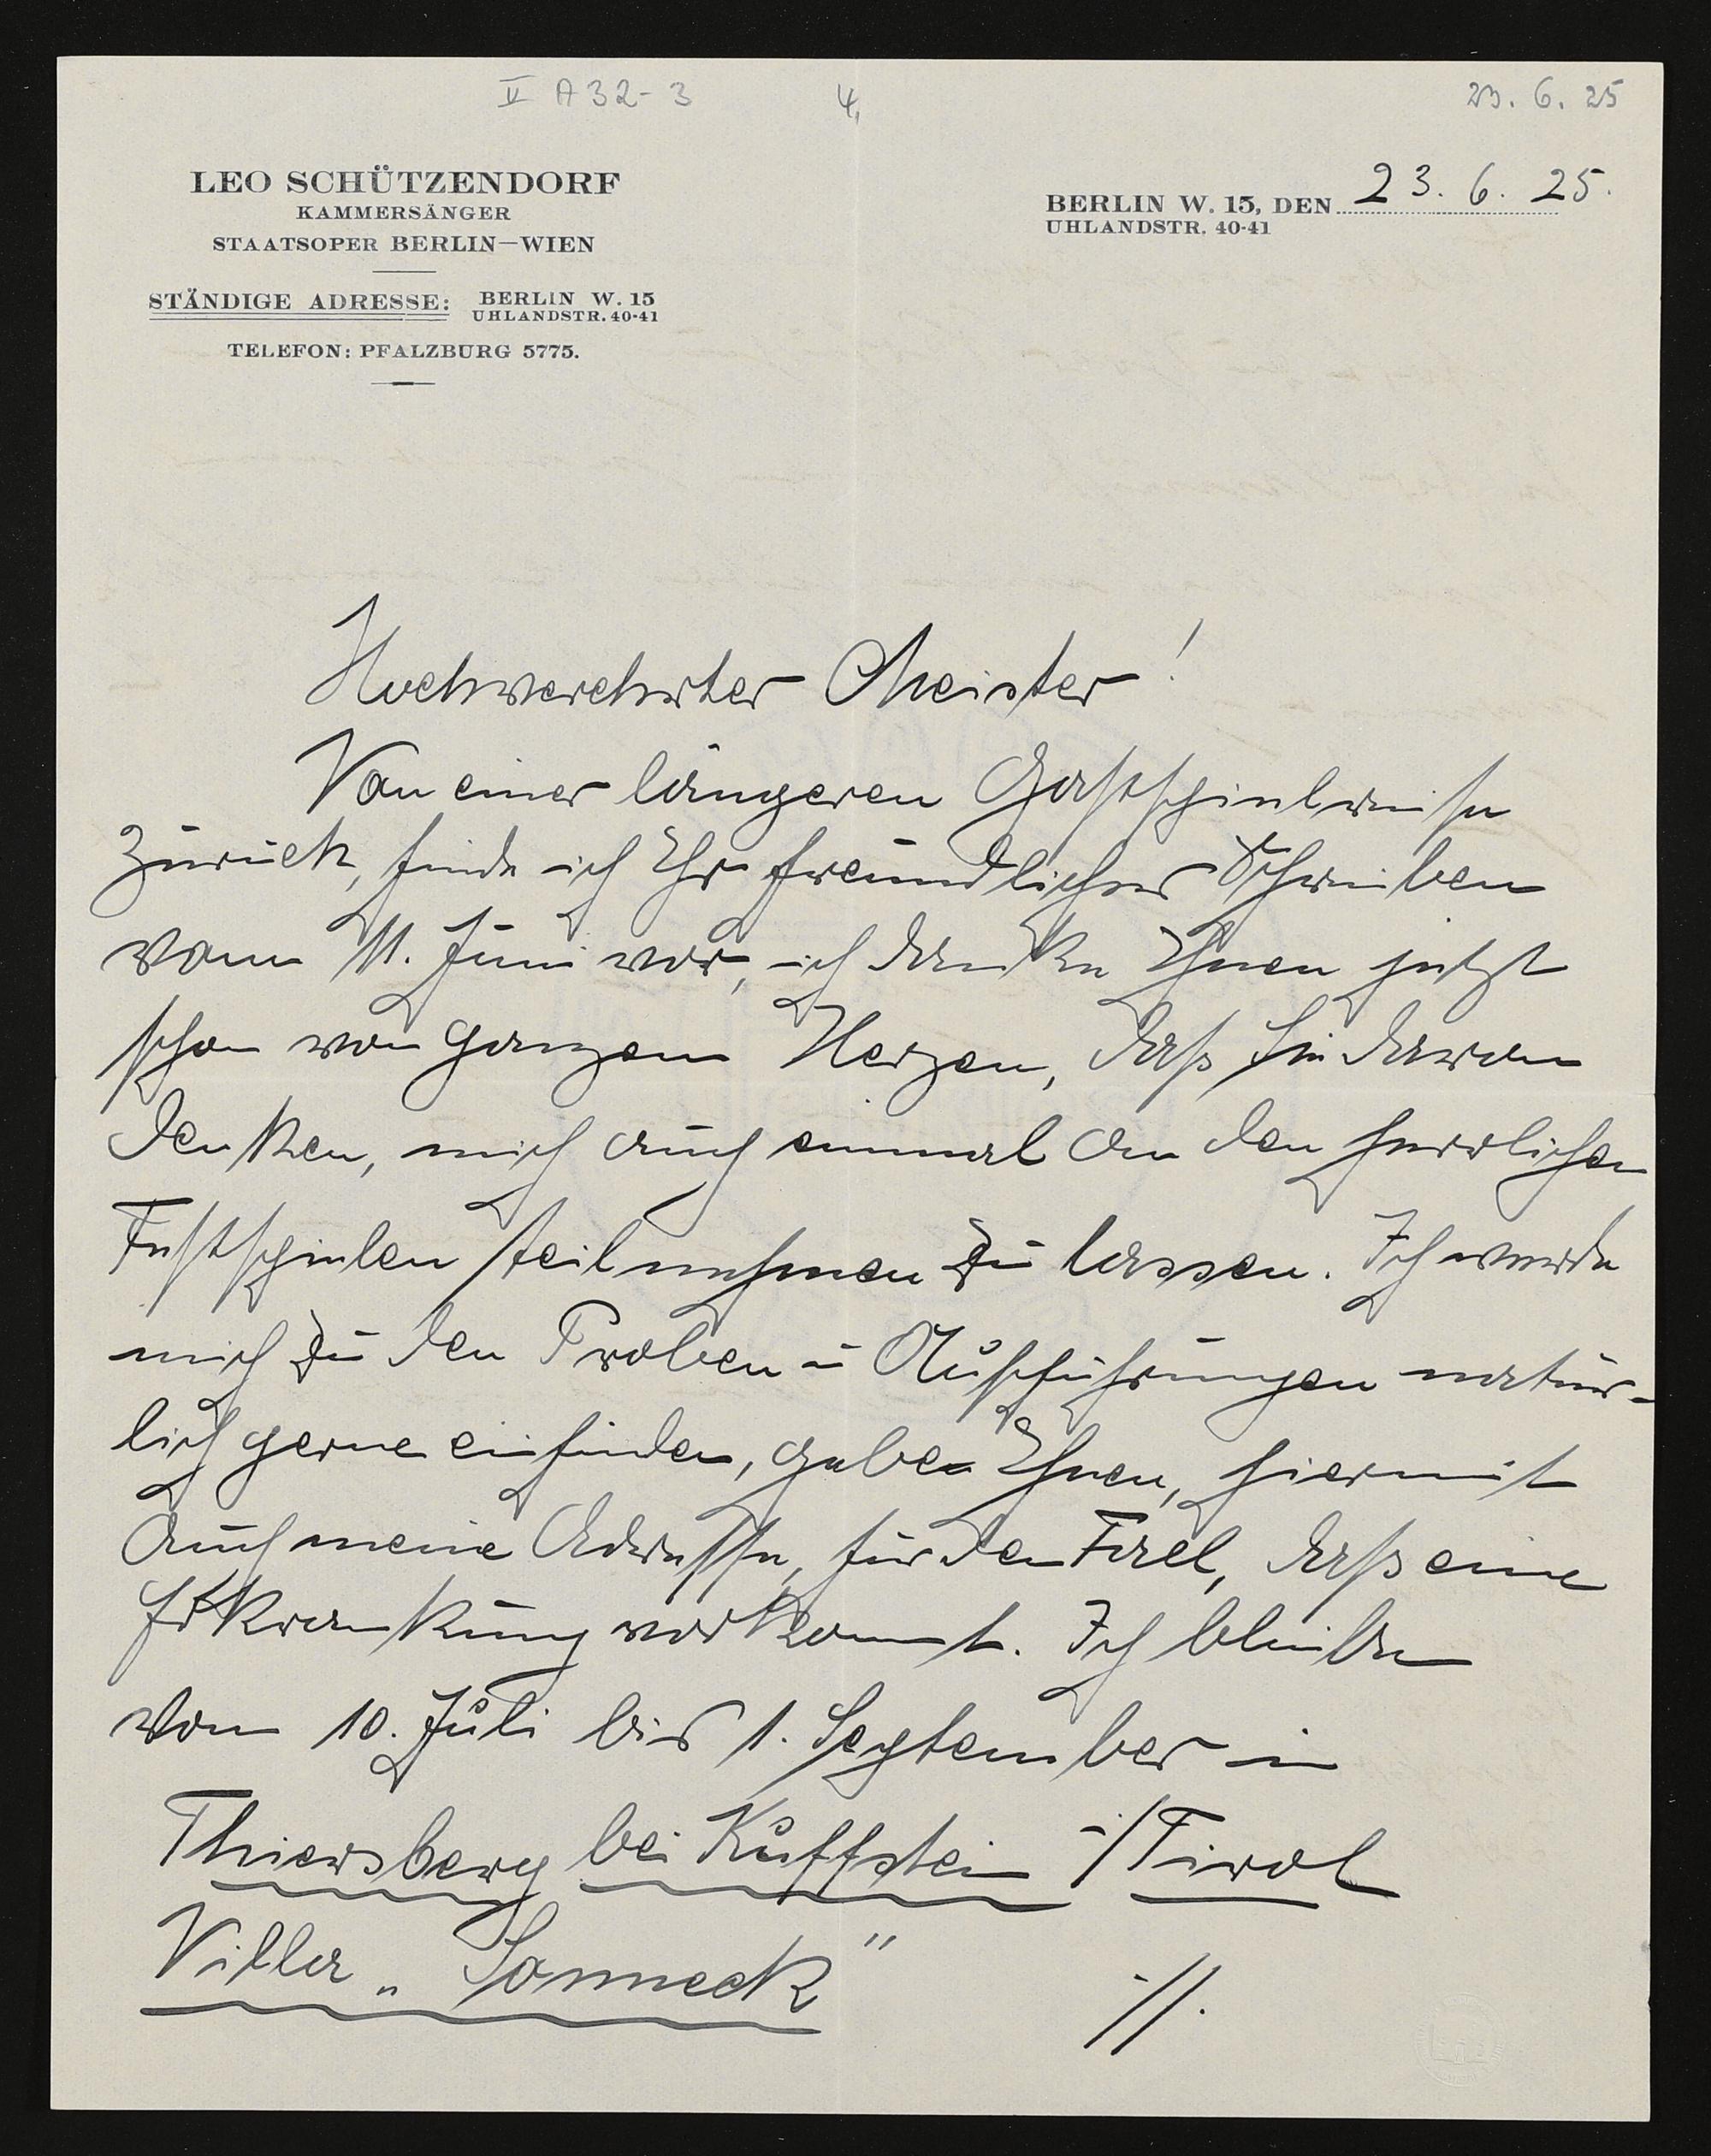 V A 32-3 4, 23. 6. 25
LEO SCHÜTZENDORF
KAMMERSÄNGER
STAATSOPER BERLIN—WIEN
STÄNDIGE ADRESSE: BERLIN W. 15
UHLANDSTR. 40-41
TELEFON: PFALZBURG 5775.
BERLIN W. 15, DEN 23. 6. 25.
UHLANDSTR. 40-41
Hochverehrter Meister!
Von einer längeren Gastspielreise
zurück, finde ich Ihr freundliches Schreiben
vom 11. Juni vor, ich danke Ihnen jetzt
schon von ganzem Herzen, daß Sie daran
denken, mich auch einmal an den herrlichen
Festspielen teilnehmen zu lassen. Ich werde
mich zu den Proben u Aufführungen natür-
lich gerne einfinden, gebe Ihnen, hiermit
auch meine Adresse, für den Fall, daß eine
Erkrankung vorkommt. Ich bleibe
vom 10. Juli bis 1. September in
Thiersberg bei Kuffstein i/Tirol
Villa „Sonneck"
·//.